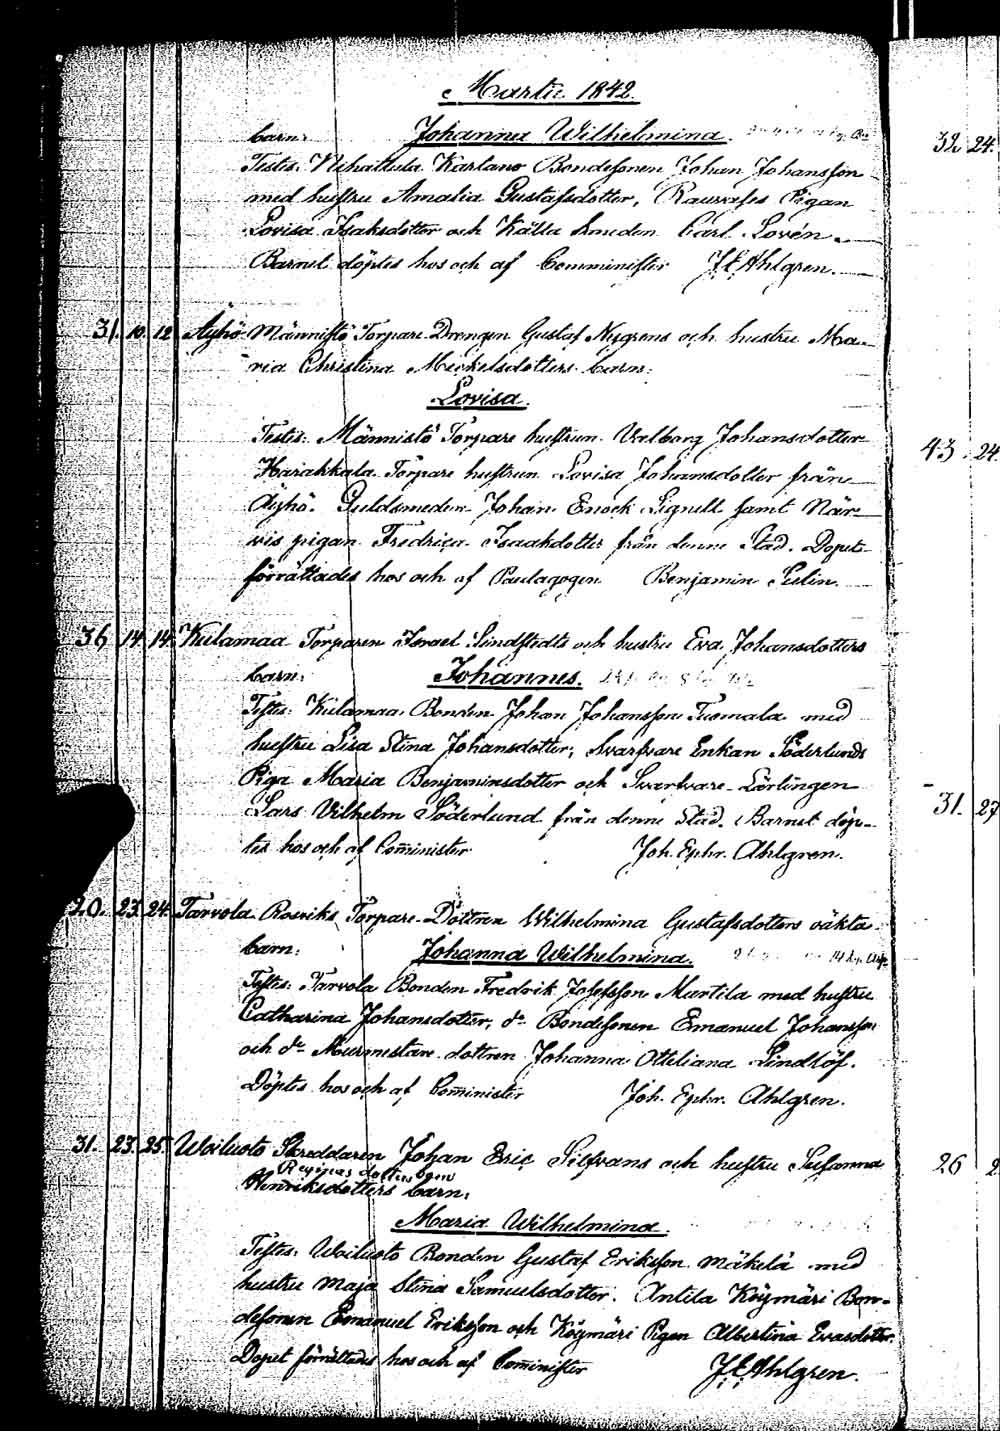 Martii 1842.
barn: Johanna Wilhelmina.
Testes: Karlano Bondesonen Johan Johansson
med hustru Amalia Gustafsdotter, Pigan
Lovisa Isaksdotter och Carl Lovén.
Barnet döptes hos och af Comminister J E Ahlgren.
31. 10. 12. Äyhö Männistö Torpare Drengen Gustaf Nygrens och hustru Ma-
ria Christina Mickelsdotters barn:
Lovisa.
Testes: Männistö Torpare hustrun Valborg Johansdotter
Harakkala Torpare hustrun Lovisa Johansdotter från
Äyhö. Guldsmeden Johan Enock Signell samt När-
vis pigan Fredrica Isaakdotter från denne Stad. Dopet
förrättades hos och af Paedagogen Benjamin Selin.
36 14. 14. Kulamaa Torparen Israel Lindstedts och hustru Eva Johansdotters
barn: Johannes.
Testes: Kulamaa Bonden Johan Johansson Tuomala med
hustru Lisa Stina Johansdotter, Svarfvare Enkan Söderlunds
Piga Maria Benjaminsdotter och Svarfvare Lärlingen
Lars Vilhelm Söderlund från denne Stad. Barnet döp-
tes hos och af Cominister Joh. Ephr. Ahlgren.
20. 23. 24. Tarvola Rosviks Torpare Dottren Wilhelmina Gustafsdotters oäkta
barn: Johanna Wilhelmina.
Testes: Tarvola Bonden Fredrik Josefsson Martila med hustru
Catharina Johansdotter, do Bondesonen Emanuel Johansson
och do Murmestare dottren Johanna Otteliana Lindlöf.
Döptes hos och af Cominister Joh. Ephr. Ahlgren.
31. 23. 25. Woiluoto Skreddaren Johan Eric Silfvans och hustru Susanna
Reginas dotters
Henriksdotters barn:
Maria Wilhelmina.
Testes: Woiluoto Bonden Gustaf Eriksson Mäkelä med
hustru Maja Stina Samuelsdotter. Antila Köymäri Bon-
desonen Emanuel Eriksson och Köymäri Pigan Albertina Evasdotter.
Dopet förrättades hos och af Cominister J E Ahlgren.
32. 24.
43. 24.
31. 27
26 2